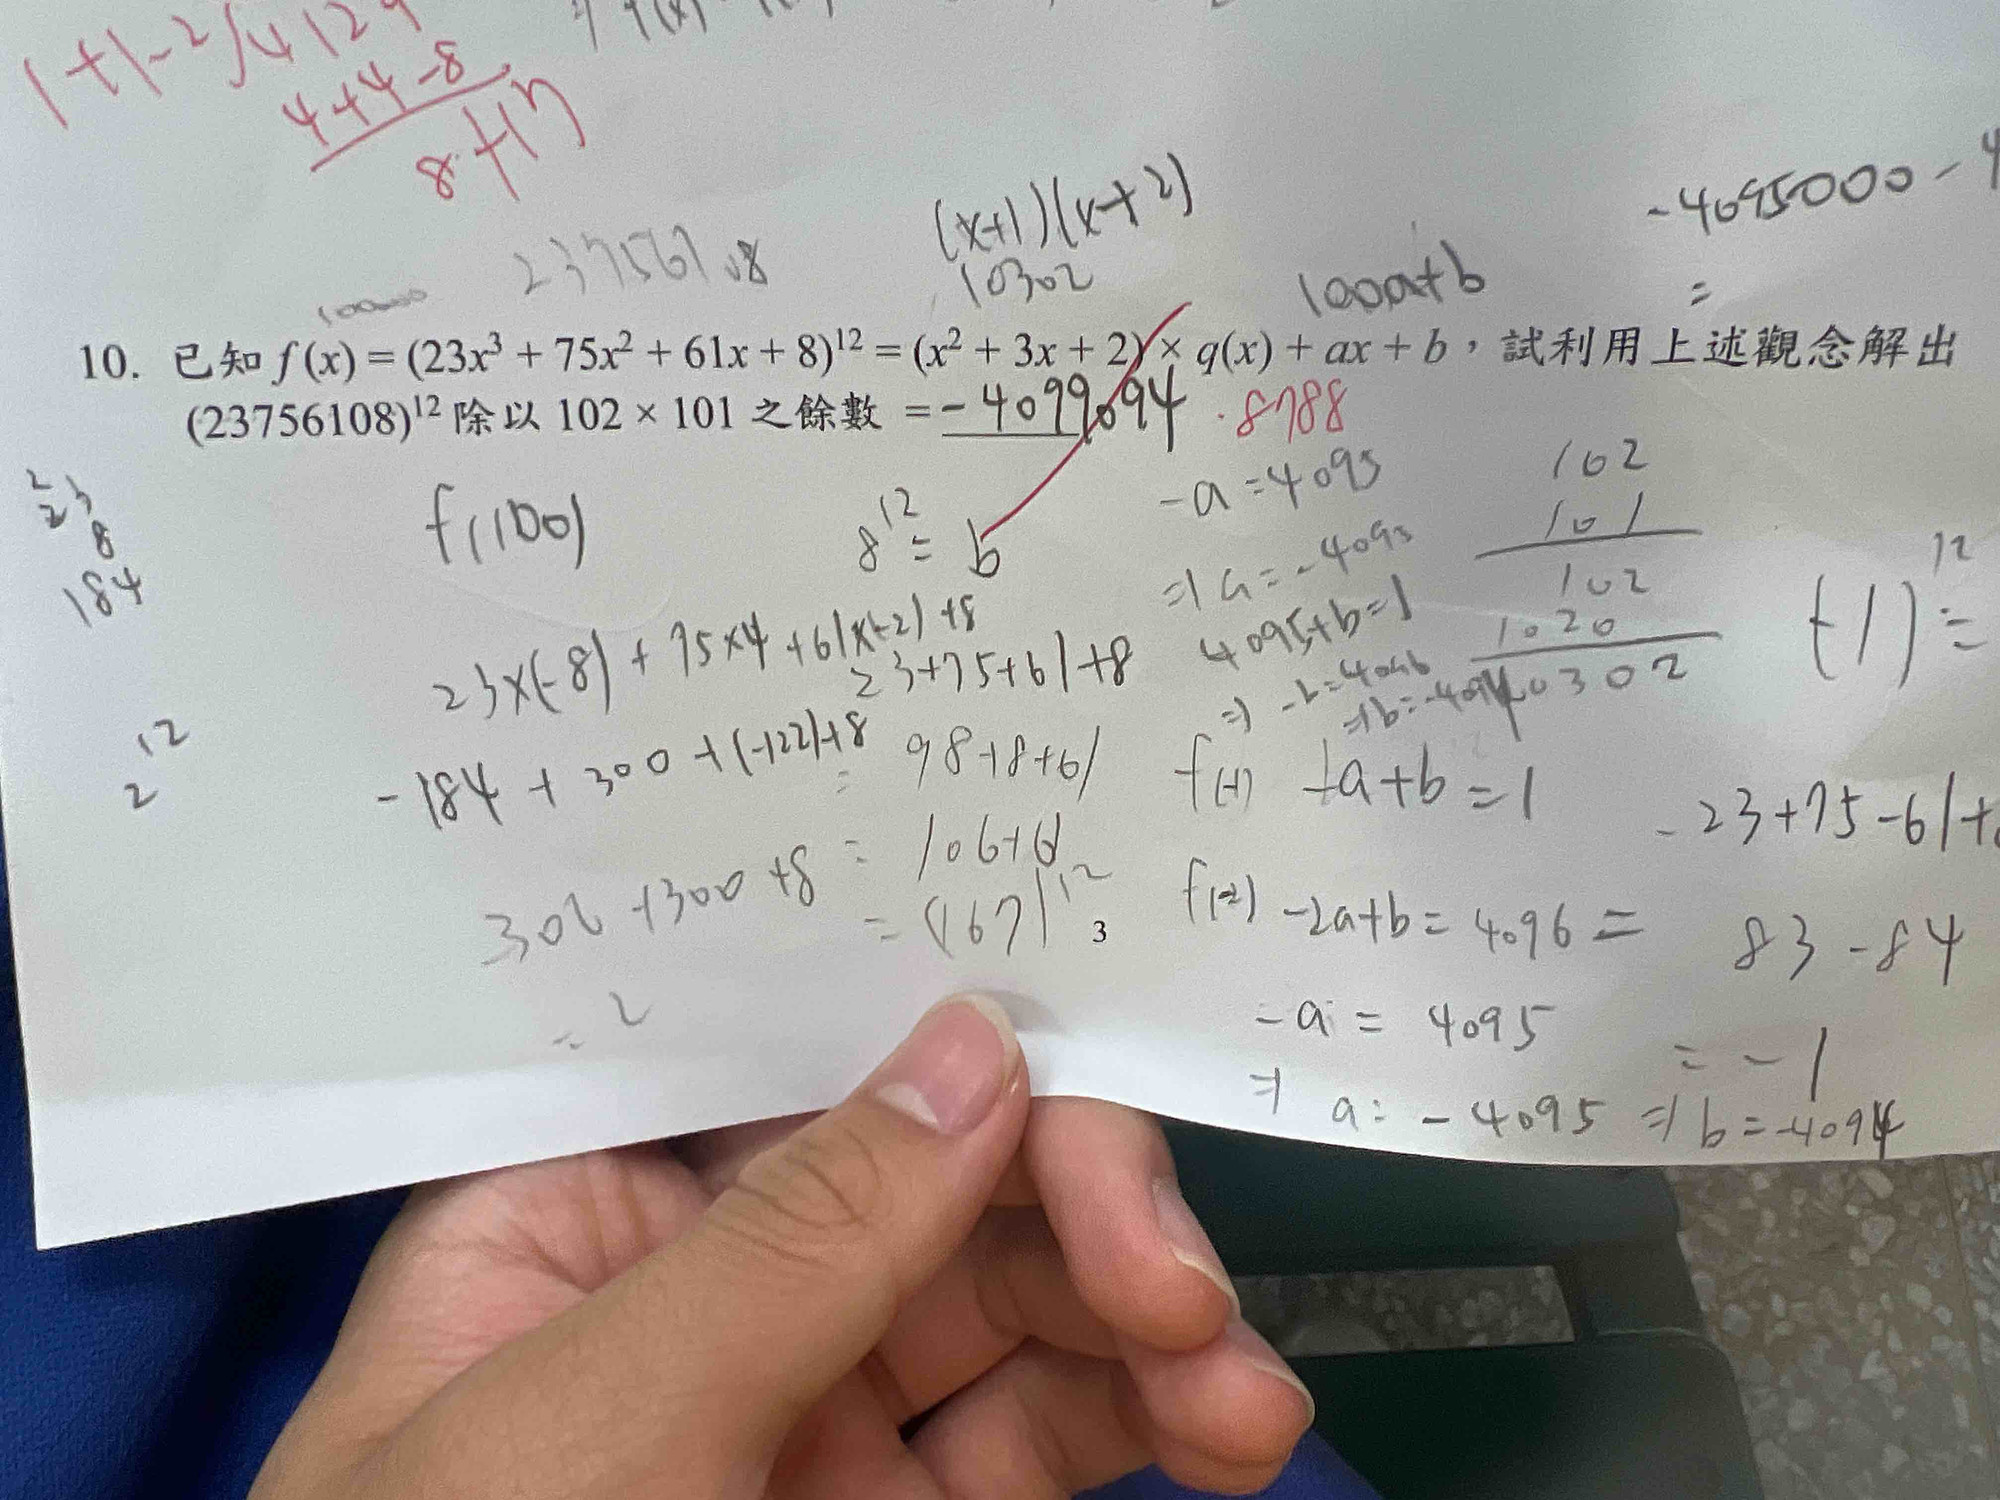 1+1-2 / 4129
4+4-8
8+17
(x+1)(x+2)
10302
-4095000-4
=
100a+b
10. 已知 f(x) = (23x³ + 75x² + 61x + 8)¹² = (x² + 3x + 2) × q(x) + ax + b，試利用上述觀念解出
(23756108)¹² 除以 102 × 101 之餘數 = -4099094 . 8788
23
8
184
f(100)
8¹² = b
-a = 4095
⇒ a = -4095
4095+b=1
⇒ -b=4096
⇒ b=-4094
102
101
102
1020
10302
(-1)¹² =
23×(-8) + 75×4 + 61×(-2) +8
23+75+61+8
2¹²
-184 + 300 + (-122)+8
= 98+8+61
306 +300 +8
= 106+61
= (167)¹²
= 2
f(-1) -a+b = 1
-23+75-61+
f(-2) -2a+b = 4096 =
83 - 84
-a = 4095
= -1
⇒ a = -4095 ⇒ b = -4094
3